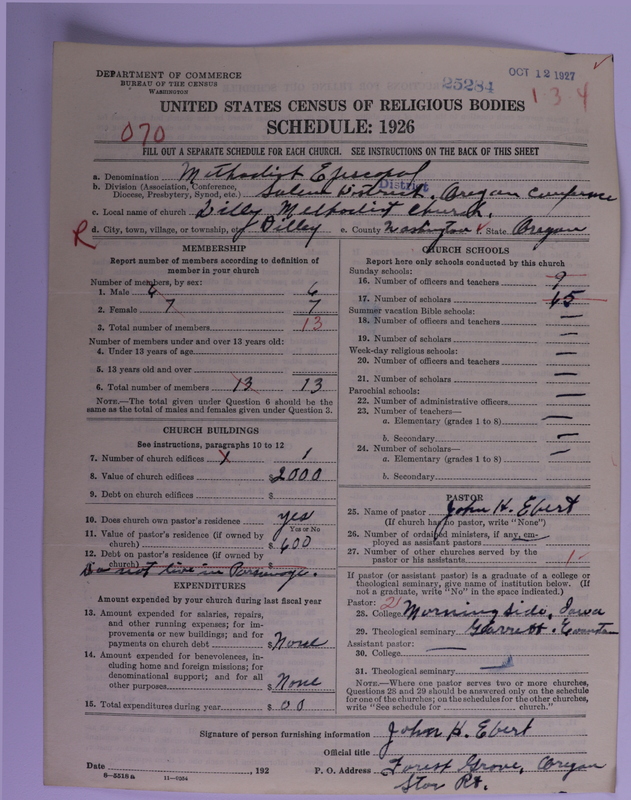 DEPARTMENT OF COMMERCE
BUREAU OF THE CENSUS
WASHINGTON
25284
OCT 12 1927
1 3 4
UNITED STATES CENSUS OF RELIGIOUS BODIES
SCHEDULE: 1926
070
FILL OUT A SEPARATE SCHEDULE FOR EACH CHURCH. SEE INSTRUCTIONS ON THE BACK OF THIS SHEET
a. Denomination Methodist Episcopal
b. Division (Association, Conference, Diocese, Presbytery, Synod, etc.) Salem District District, Oregon Conference
c. Local name of church Dilley Methodist Church.
R d. City, town, village, or township, etc. Dilley e. County Washington f. State Oregon
MEMBERSHIP
Report number of members according to definition of
member in your church
Number of members, by sex:
1. Male 6 6
2. Female 7 7
3. Total number of members 13
Number of members under and over 13 years old:
4. Under 13 years of age
5. 13 years old and over
6. Total number of members 13 13
NOTE.—The total given under Question 6 should be the
same as the total of males and females given under Question 3.
CHURCH BUILDINGS
See instructions, paragraphs 10 to 12
7. Number of church edifices 1
8. Value of church edifices $2000
9. Debt on church edifices $
10. Does church own pastor's residence yes
Yes or No
11. Value of pastor's residence (if owned by
church) $600
12. Debt on pastor's residence (if owned by
church) $
Do not live in Parsonage.
EXPENDITURES
Amount expended by your church during last fiscal year
13. Amount expended for salaries, repairs,
and other running expenses; for im-
provements or new buildings; and for
payments on church debt $None
14. Amount expended for benevolences, in-
cluding home and foreign missions; for
denominational support; and for all
other purposes $None
15. Total expenditures during year $00
CHURCH SCHOOLS
Report here only schools conducted by this church
Sunday schools:
16. Number of officers and teachers 9
17. Number of scholars 65
Summer vacation Bible schools:
18. Number of officers and teachers —
19. Number of scholars —
Week-day religious schools:
20. Number of officers and teachers —
21. Number of scholars —
Parochial schools:
22. Number of administrative officers —
23. Number of teachers—
a. Elementary (grades 1 to 8) —
b. Secondary —
24. Number of scholars—
a. Elementary (grades 1 to 8) —
b. Secondary
PASTOR
25. Name of pastor John H. Ebert
(If church has no pastor, write "None")
26. Number of ordained ministers, if any, em-
ployed as assistant pastors —
27. Number of other churches served by the
pastor or his assistants 1
If pastor (or assistant pastor) is a graduate of a college or
theological seminary, give name of institution below. (If
not a graduate, write "No" in the space indicated.)
Pastor:
28. College Morningside, Iowa
29. Theological seminary Garrett. Evanston
Assistant pastor:
30. College —
31. Theological seminary —
NOTE.—Where one pastor serves two or more churches,
Questions 28 and 29 should be answered only on the schedule
for one of the churches; on the schedules for the other churches,
write "See schedule for church."
Signature of person furnishing information John H. Ebert
Official title
Date , 192 P. O. Address Forest Grove, Oregon
Star Rt.
8—5518a 11—9034